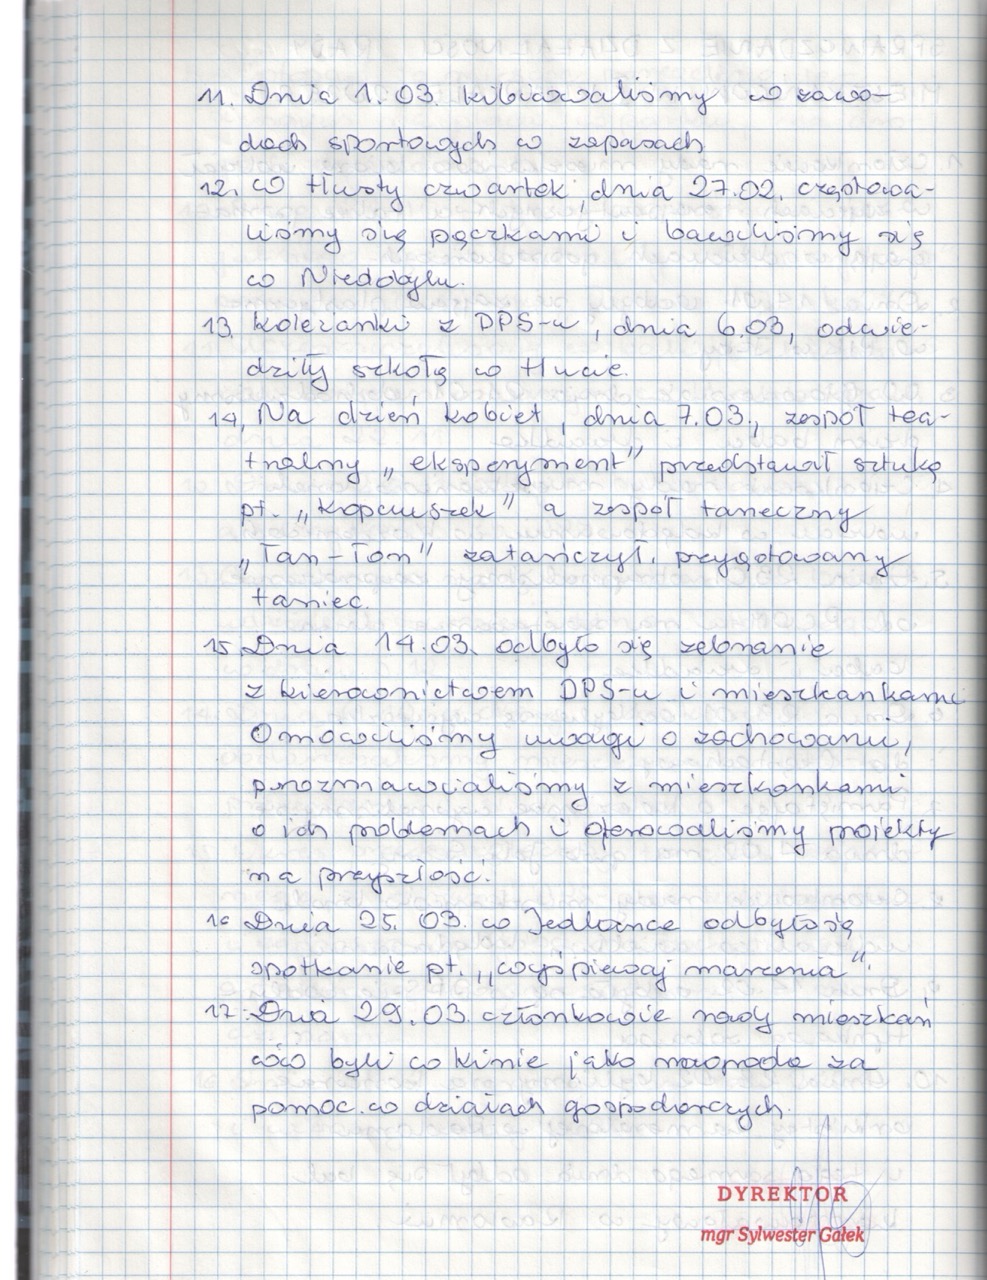 11. Dnia 1.03. kibicowaliśmy w zawo-
dach sportowych w zapasach
12. w tłusty czwartek, dnia 27.02. częstowa-
liśmy się pączkami i bawiliśmy się
w Niedobylu.
13. koleżanki z DPS-u, dnia 6.03, odwie-
dziły szkołę w Hucie.
14, Na dzień kobiet, dnia 7.03., zespół tea-
tralny „eksperyment" przedstawił sztukę
pt. „Kopciuszek" a zespół taneczny
„Tan-Tom" zatańczył. przygotowany
taniec.
15. Dnia 14.03. odbyło się zebranie
z kierownictwem DPS-u i mieszkankami
Omówiliśmy uwagi o zachowaniu,
porozmawialiśmy z mieszkankami
o ich problemach i oferowaliśmy projekty
na przyszłość.
16 Dnia 25.03. w Jedlance odbyło się
spotkanie pt. „wyśpiewaj marzenia".
17. Dnia 29.03. członkowie rady mieszkań
ców byli w kinie jako nagroda za
pomoc w działach gospodarczych.
DYREKTOR
mgr Sylwester Gałek